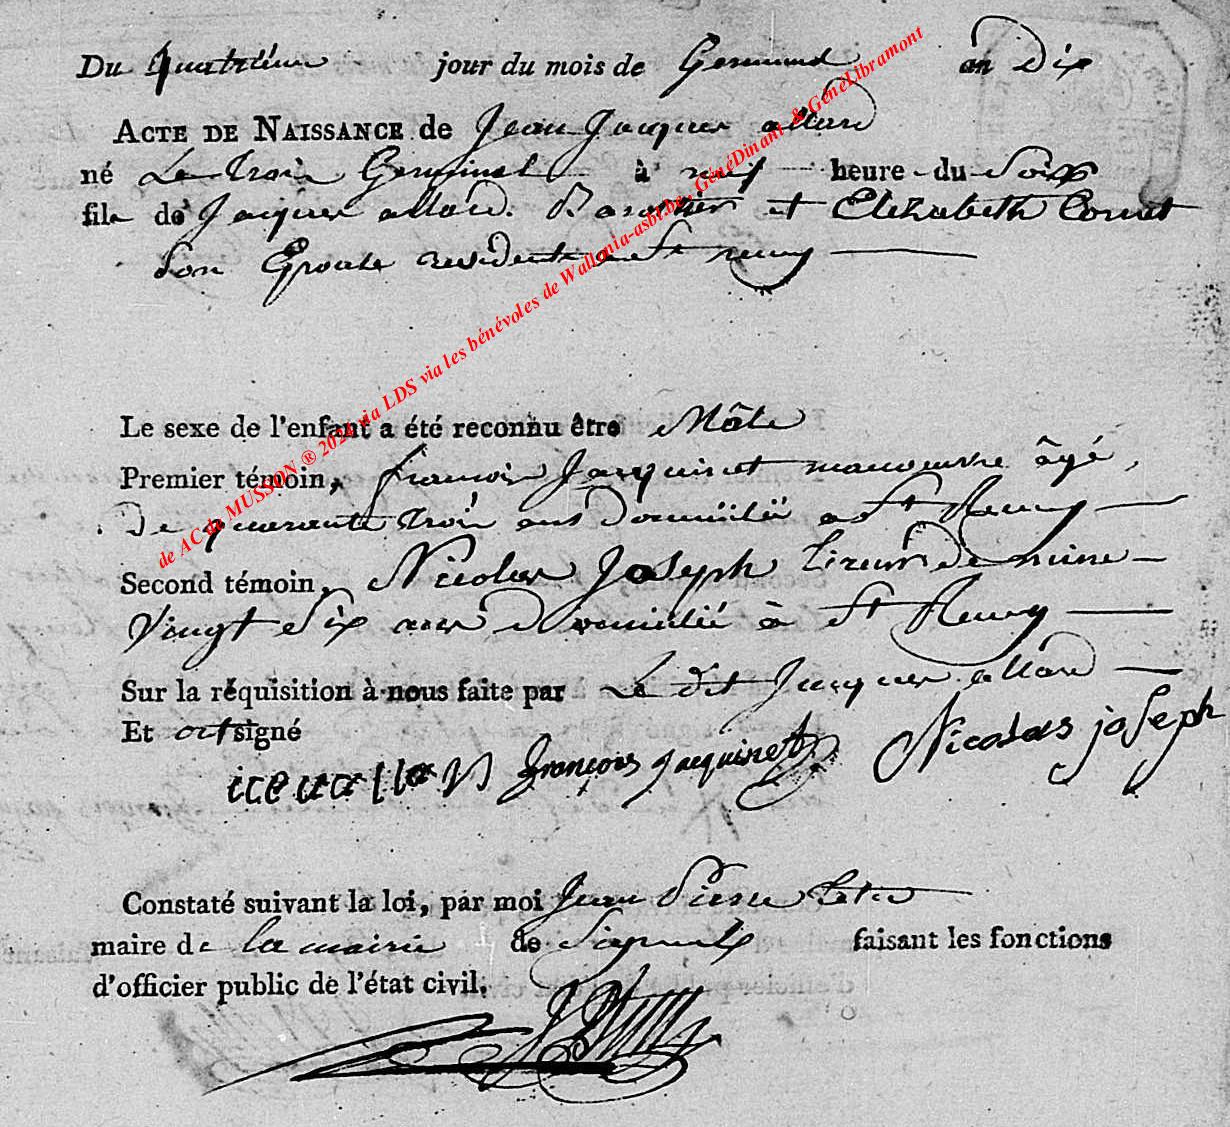 Du quatrième jour du mois de Germinal an Dix
ACTE DE NAISSANCE de Jean Jacques allard
né Le trois Germinal à neuf heure du Soir
fils de Jacques allard. et Elizabeth Cornet
Son Epouse residents a St remy
Le sexe de l'enfant a été reconnu être Mâle
Premier témoin, francois Jacquinet manoeuvre âgé
De quarante trois ans Domicilié a St Remy
Second témoin, Nicolas Joseph tireur de mine
Vingt Six ans Domicilié à St Remy
Sur la réquisition à nous faite par Le dit Jacques allard
Et ont signé
françois jacquinet Nicolas joseph
Constaté suivant la loi, par moi Jean Pierre
maire de la mairie de Signeulx faisant les fonctions
d'officier public de l'état civil.
de AC de MUSSON ® 2024 via LDS via les bénévoles de Wallonia-asbl.be, GénéDinant & GénéLibramont